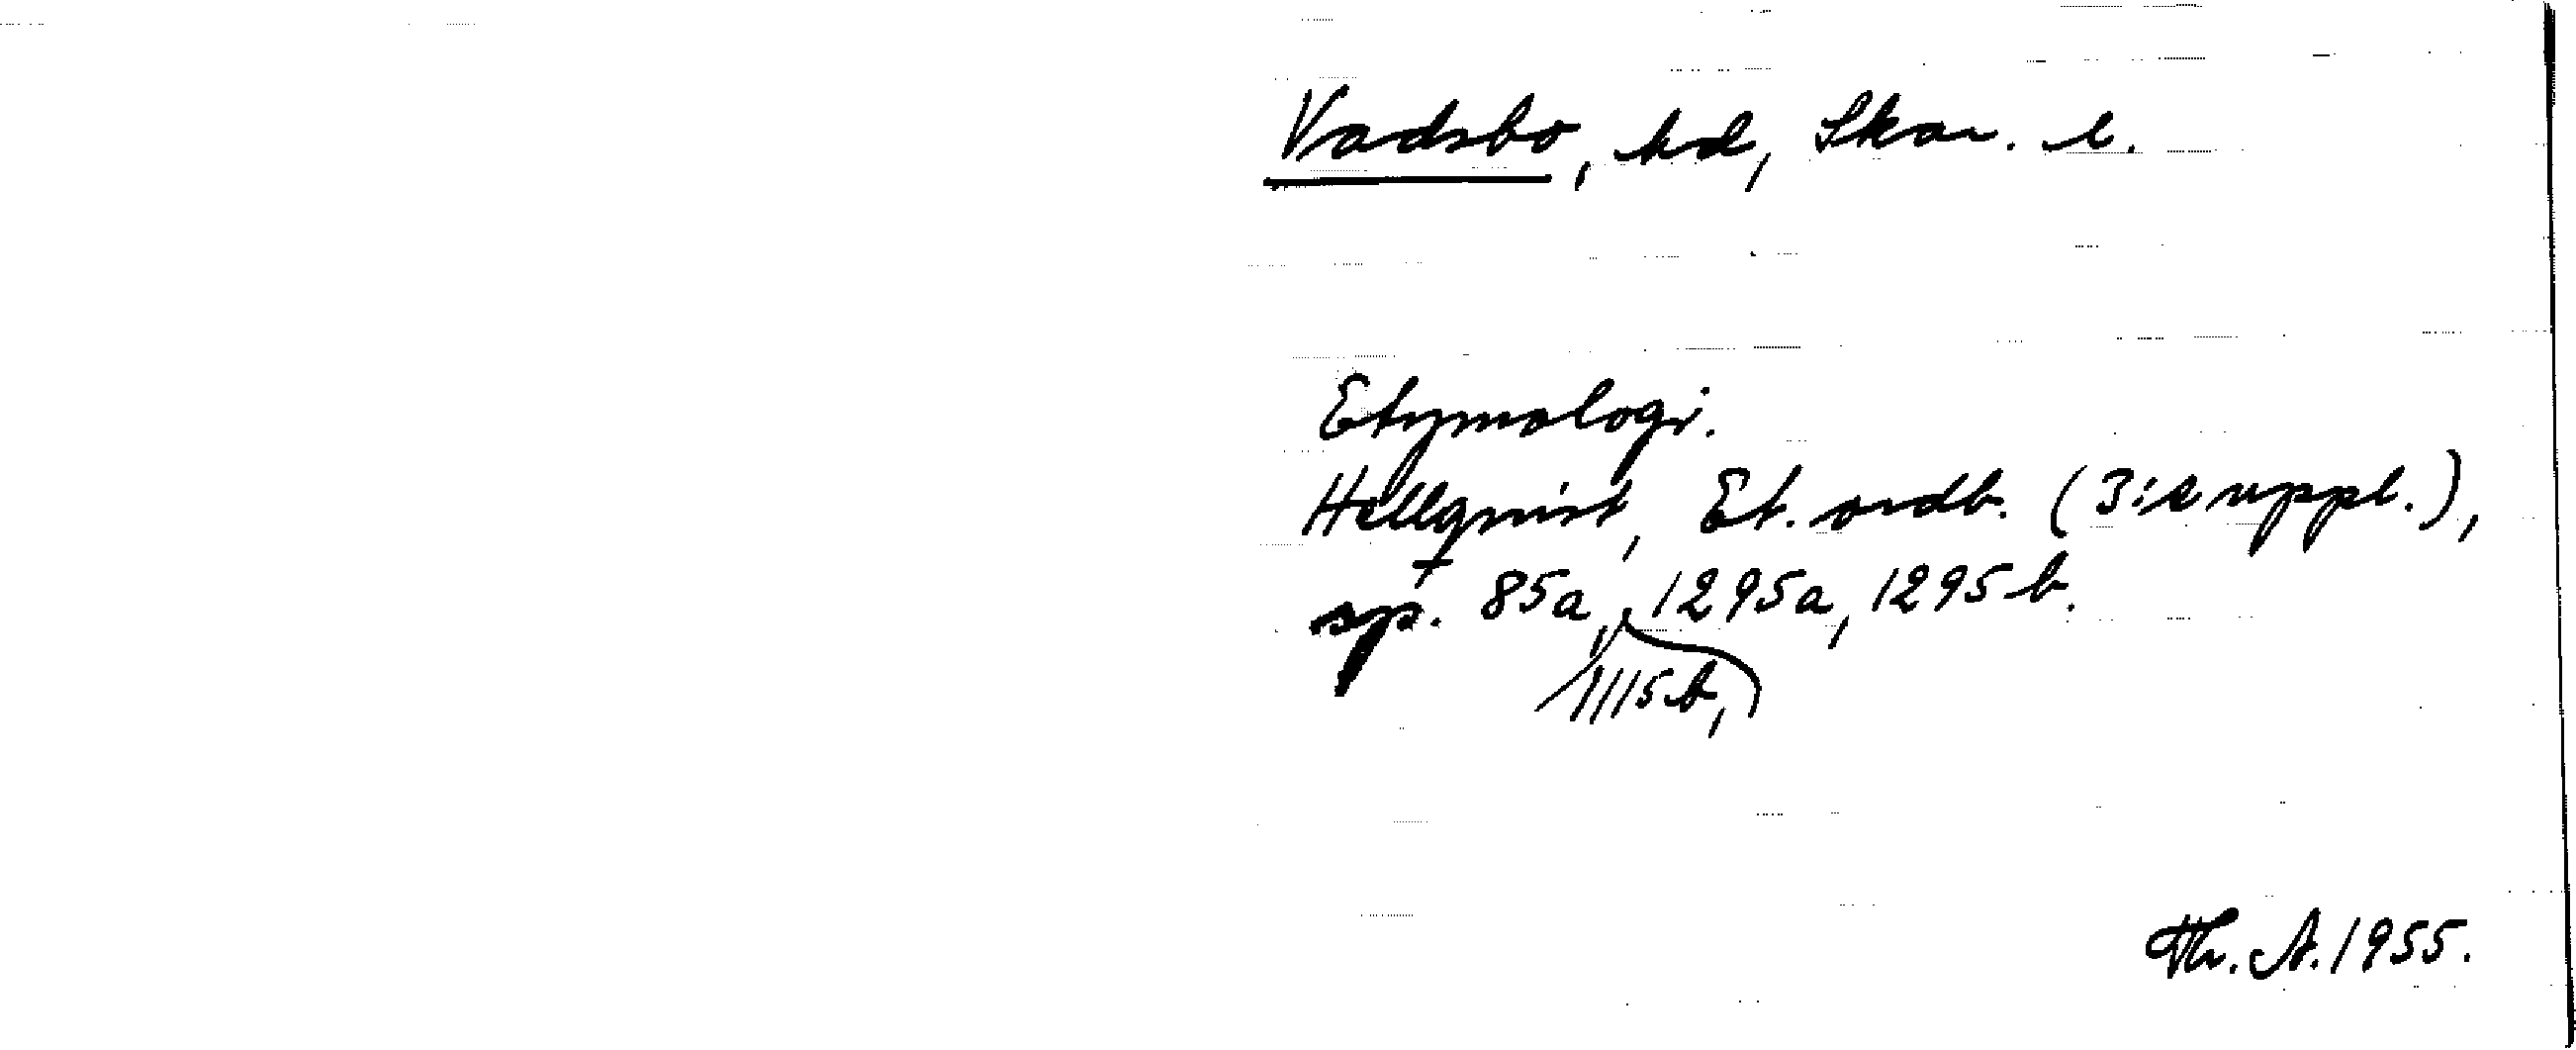 Vadsbo, hd, Skar. l.
Etymologi.
Hellquist, Et. ordb. (3:e uppl.),
sp. 85a, 1295a, 1295b.
1115b,
Th. A. 1955.